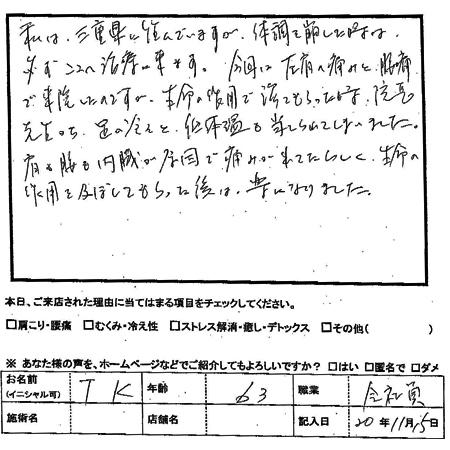 私は、三重県に住んでいますが、体調を崩した時は、
必ずここへ治療に来ます。今回は左肩の痛みと、腰痛
で来院したのですが、生命の作用で治してもらった時、院長
先生から、足の冷えと、低体温も当てられてしまいました。
肩も腰も内臓が原因で痛みが来てたらしく、生命の
作用を及ぼしてもらった後は、楽になりました。
本日、ご来店された理由に当てはまる項目をチェックしてください。
□肩こり・腰痛 □むくみ・冷え性 □ストレス解消・癒し・デトックス □その他( )
※ あなた様の声を、ホームページなどでご紹介してもよろしいですか？ □はい □匿名で □ダメ
お名前 (イニシャル可) T K 年齢 63 職業 会社員
施術名 店舗名 記入日 20年11月15日